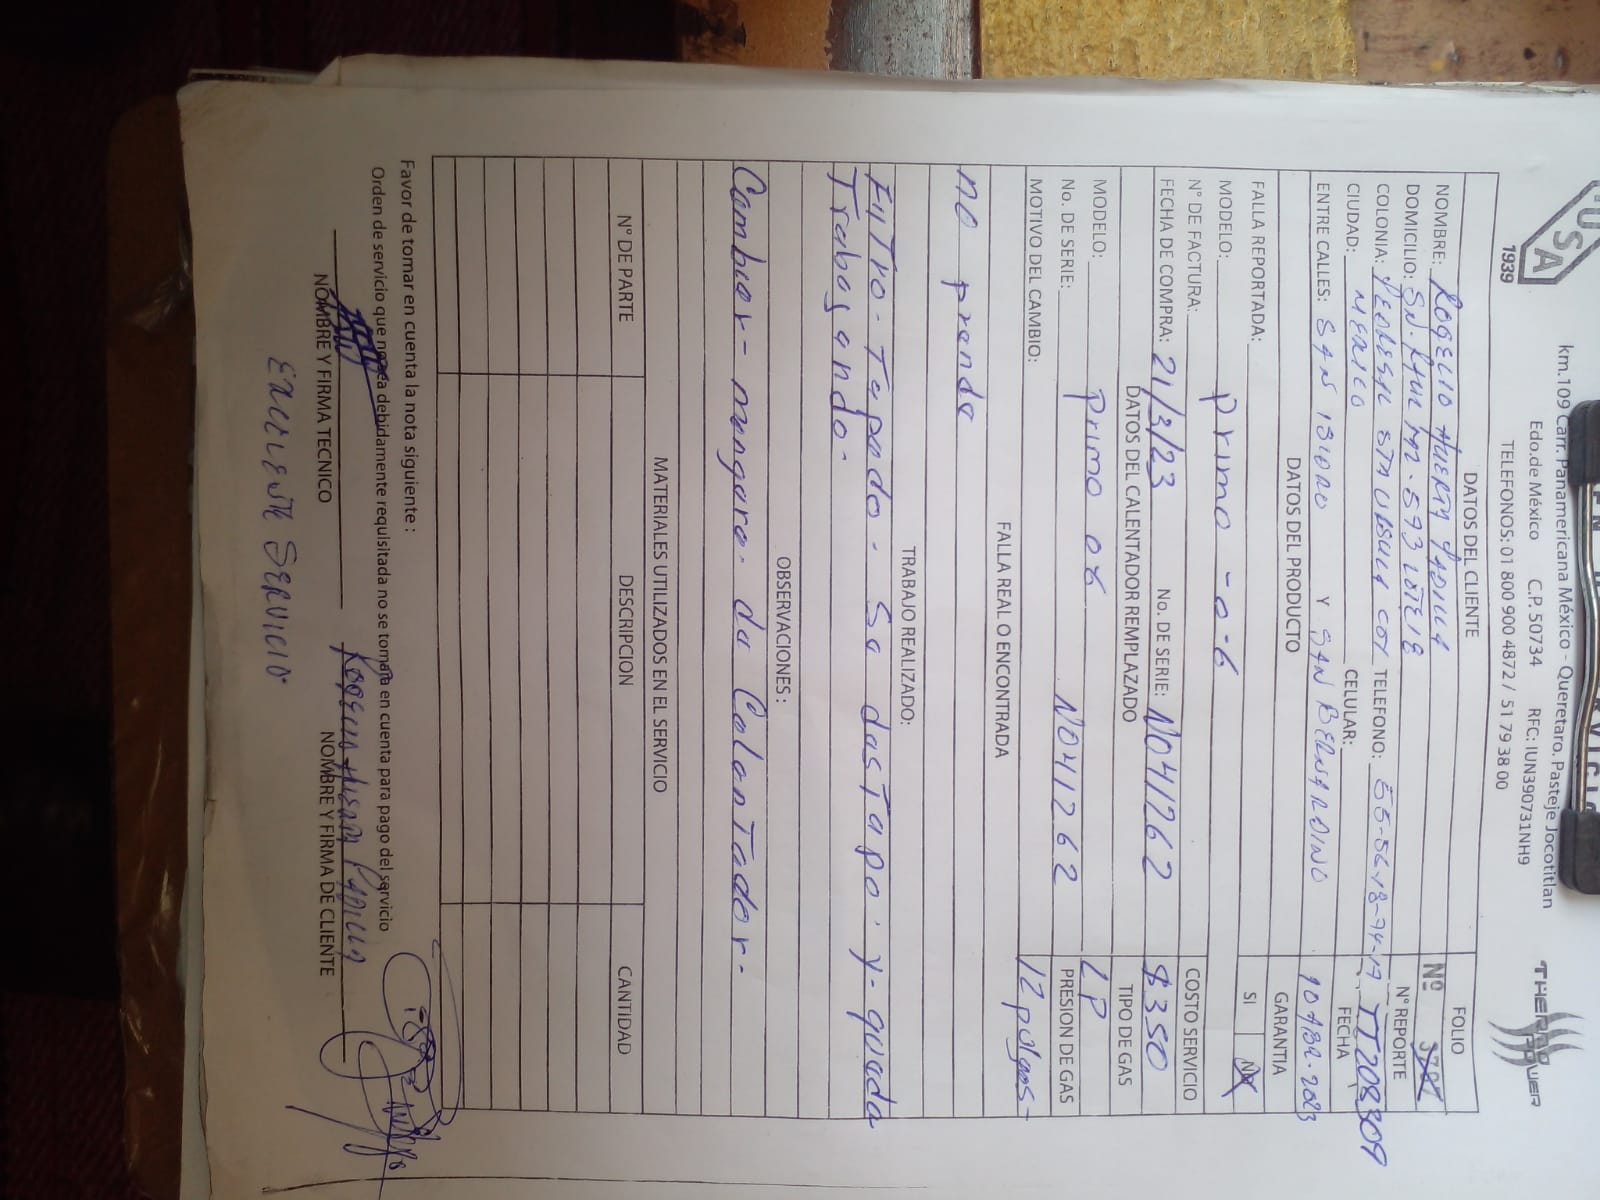 USA
1939
km.109 Carr. Panamericana México - Queretaro. Pasteje Jocotitlan
Edo.de México C.P. 50734 RFC: IUN390731NH9
TELEFONOS: 01 800 900 4872 / 51 79 38 00
THERMO POWER
DATOS DEL CLIENTE
FOLIO
NOMBRE: ROGELIO HUERTA PADILLA
Nº
DOMICILIO: SN. RAUL MZ-593 LOTE 18
N° REPORTE
COLONIA: PEDREGAL STA URSULA COY TELEFONO: 55-56-18-74-17
TT208309
CIUDAD: MEXICO CELULAR:
FECHA
ENTRE CALLES: SAN ISIDRO Y SAN BERNARDINO
10 ABR-2023
DATOS DEL PRODUCTO
GARANTIA
FALLA REPORTADA:
SI NO
MODELO: primo - 0-6
N° DE FACTURA:
COSTO SERVICIO
FECHA DE COMPRA: 21/3/23 No. DE SERIE: N041262
$350
DATOS DEL CALENTADOR REMPLAZADO
TIPO DE GAS
MODELO: primo 06
LP
No. DE SERIE: N041262
PRESION DE GAS
MOTIVO DEL CAMBIO:
12 polgas-
FALLA REAL O ENCONTRADA
no prende
TRABAJO REALIZADO:
FilTro- Tapado- Sa dasTapo. y- quada
Trabasando.
OBSERVACIONES:
Combior- mngaro. du ColonTador-
MATERIALES UTILIZADOS EN EL SERVICIO
N° DE PARTE DESCRIPCION CANTIDAD
Favor de tomar en cuenta la nota siguiente :
Orden de servicio que no sea debidamente requisitada no se tomara en cuenta para pago del servicio
ROGELIO HUERTA PADILLA
NOMBRE Y FIRMA TECNICO NOMBRE Y FIRMA DE CLIENTE
EXCELENTE SERVICIO.